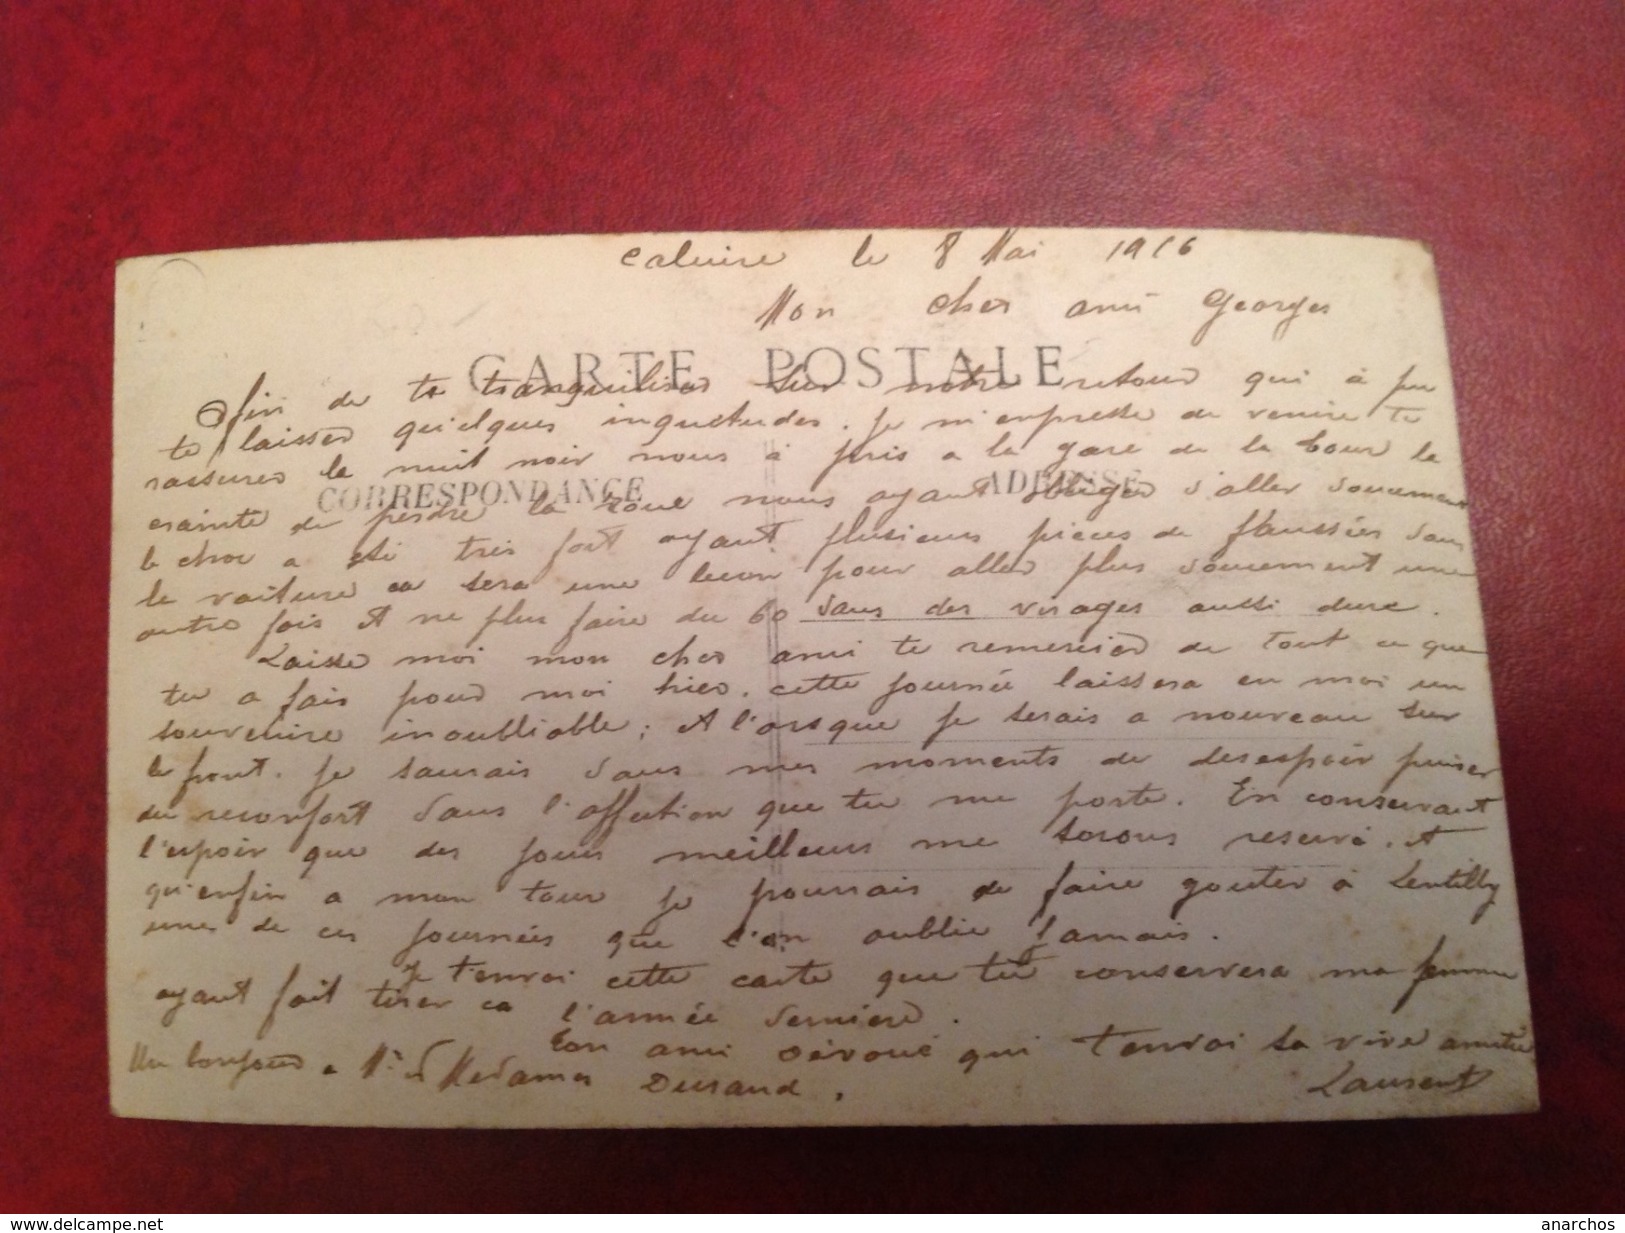 Caluire le 8 Mai 1916
Mon cher ami Georges
CARTE POSTALE
Afin de te tranquiliser sur notre retour qui à pu
te laisser quelques inquetudes. Je m'enpresse de venire te
rassurer la nuit noir nous à pris a la gare de la Tour la
CORRESPONDANCE
ADRESSE
crainte de perdre la roue nous ayant obliger d'aller doucement
le choc a été très fort ayant plusieurs pièces de faussées dans
la voiture ca sera une lecon pour aller plus doucement une
autre fois et ne plus faire du 60 dans des virages aussi dure.
Laisse moi mon cher ami te remercier de tout ce que
tu a fais pour moi hier. cette journée laissera en moi un
souvenire inoubliable; et l'orsque je serais a nouveau sur
le front. je saurais dans mes moments de desespoir puiser
du reconfort dans l'affection que tu me porte. En conservant
l'espoir que des jours meilleurs me serons reservé. et
qu'enfin a mon tour je pourrais te faire gouter à Lentilly
une de ces journées que l'on oublie jamais.
Je t'envoi cette carte que tu conservera ma femme
ayant fait tirer ca l'année dernière.
Ton ami dévoué qui t'envoi sa vive amitié
Un bonjour a Mr et Medames Durand.
Laurent
delcampe.net
anarchos